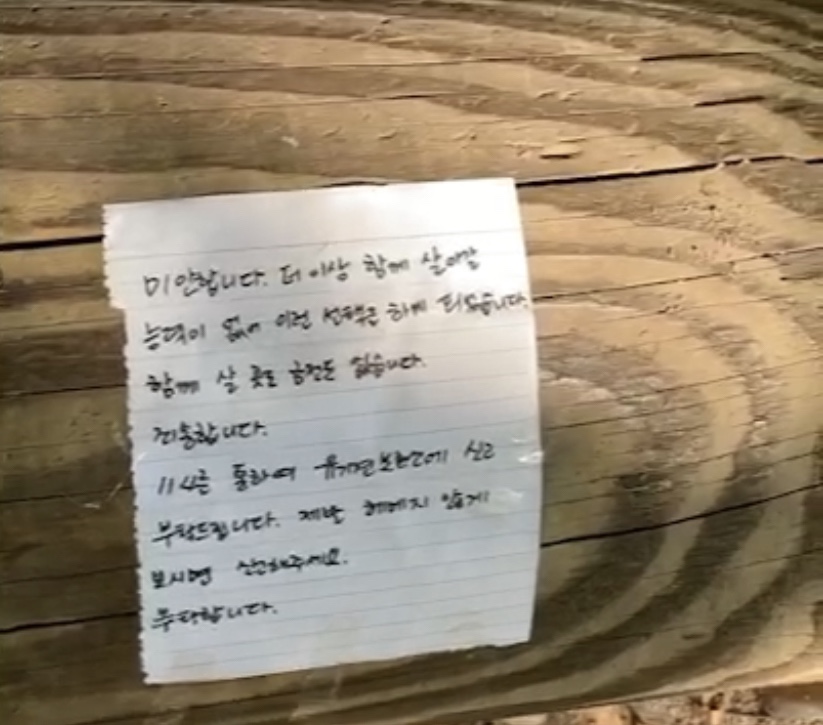 미안합니다. 더 이상 함께 살아갈
능력이 없어 이런 선택을 하게 되었습니다.
함께 살 곳도 금전도 없습니다.
죄송합니다.
114를 통하여 유기견보호소에 신고
부탁드립니다. 제발 헤메지 않게
보시면 신고해주세요.
부탁합니다.